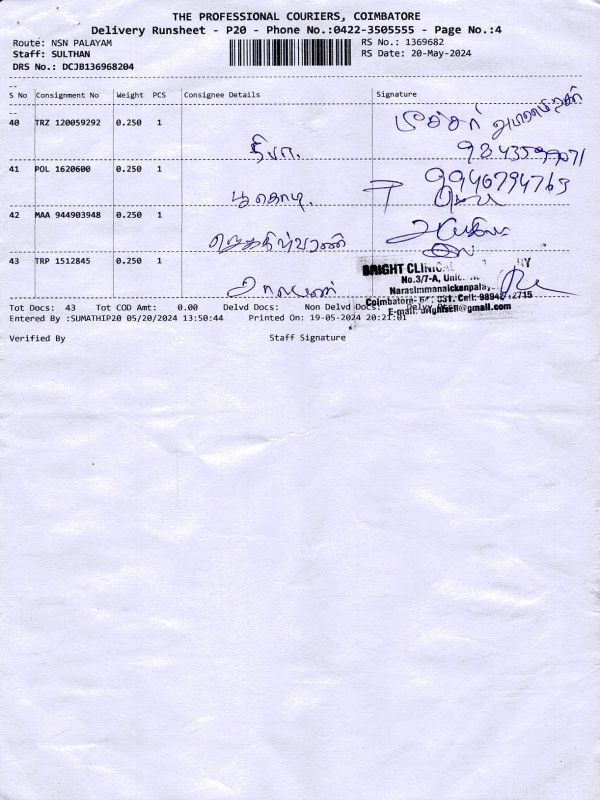 THE PROFESSIONAL COURIERS, COIMBATORE
Delivery Runsheet - P20 - Phone No.:0422-3505555 - Page No.:4
Route: NSN PALAYAM RS No.: 1369682
Staff: SULTHAN RS Date: 20-May-2024
DRS No.: DCJB136968204
S No Consignment No Weight PCS Consignee Details Signature
40 TRZ 120059292 0.250 1
தீபா.
41 POL 1620600 0.250 1
பூங்கொடி.
9946794763
42 MAA 944903948 0.250 1
43 TRP 1512845 0.250 1
BRIGHT CLINICAL
No.3/7-A,
Narasimmanaickenpalay
Coimbatore- 031. Cell: 9894 2715
E-mail: @gmail.com
Tot Docs: 43 Tot COD Amt: 0.00 Delvd Docs: Non Delvd Docs:
Entered By :SUMATHIP20 05/20/2024 13:50:44 Printed On: 19-05-2024 20:21:01
Verified By Staff Signature